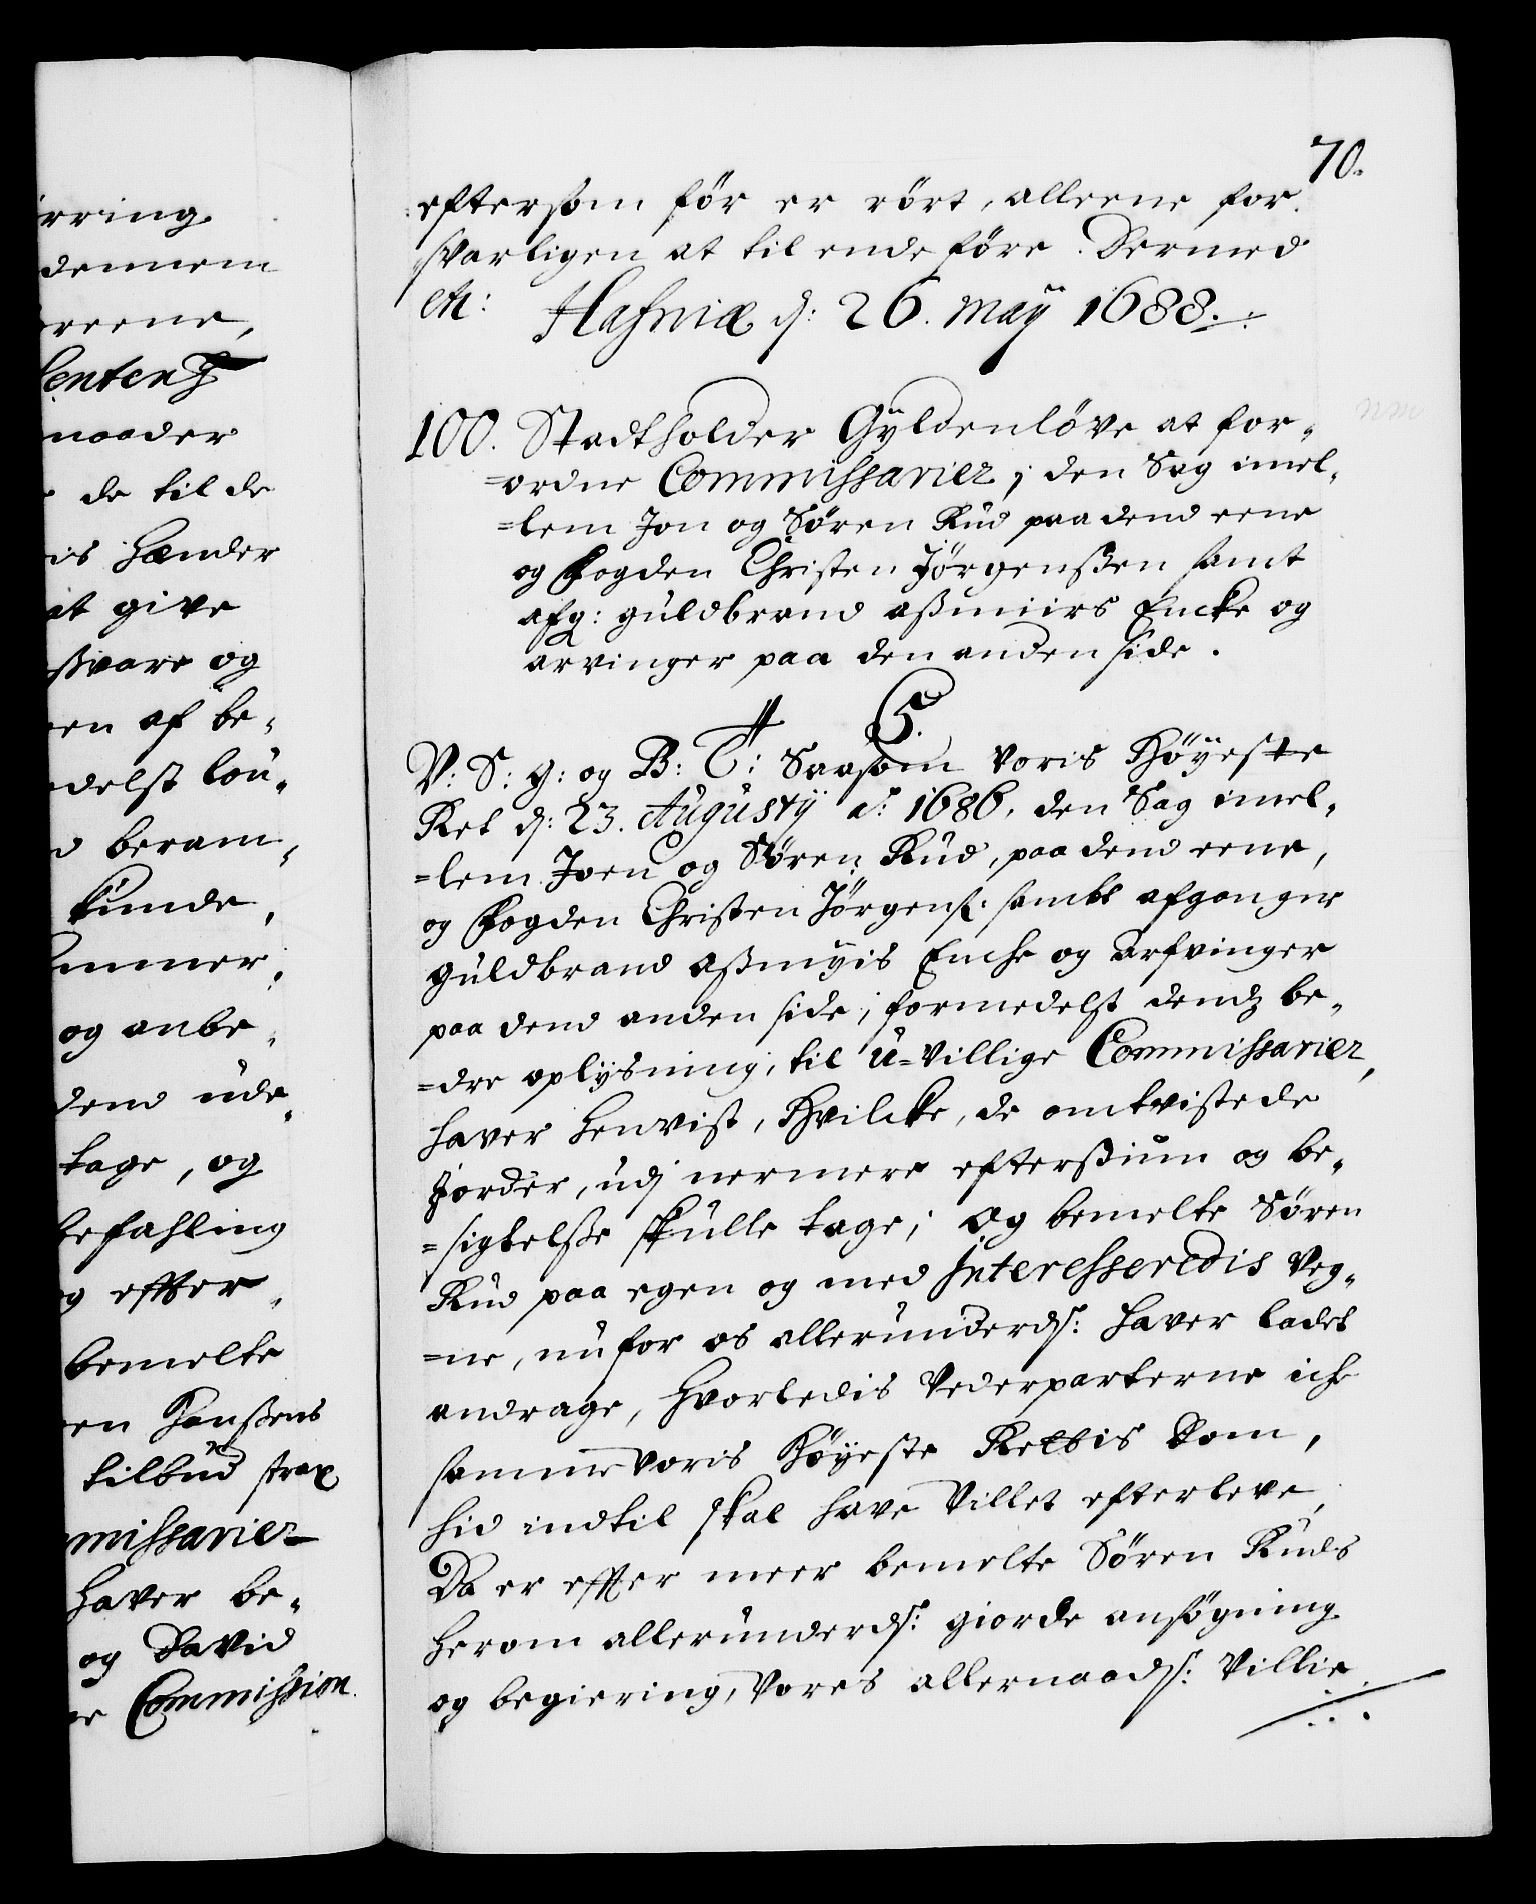 rring
dennem
reene,
Sentenz
naader
de til de
is hænder
at give
ßvare og
en af be-
delst lou-
d beram-
kunde,
ummer,
og anbe-
dend ude-
tage, og
befahling
g effter
bemelte
en Hanßens
tilbud strax
mmissarier
haver be-
og David
er Commission
70.
eftersom för er rört, alleene for-
svarligen at til ende före. Dermed
etc: Hafniæ d: 26. Maÿ 1688.
100. Stadtholder Gÿldenlöve at for-
=ordne Commissarier, i den Sag imel-
=lem Jon og Sören Rud paa dend eene
og Fogden Christen Jörgenßen samt
afg: Guldbrand Aßmiirs Encke og
arvinger paa den anden side.
C 5.
V: S: G: og B: T: Saasom voris Höÿeste
Ret d: 23. Augustÿ a: 1686. den Sag imel-
=lem Joen og Sören Rud, paa dend eene,
og Fogden Christen Jörgens: sambt afgangne
Guldbrand Aßmÿis Encke og Arfvinger
paa dend anden side, formedelst dendz be-
=dre oplÿsning, til u-villige Commissarier,
haver henvist, Hvilcke, de omtvistede
Jorder, udj nermere efterßium og be-
=sigtelße skulle tage; Og bemelte Sören
Rud paa egen og med Interesseredis veg-
=ne, nu for os allerunderds: haver ladet
andrage, hvorledis Vederparterne icke
samme voris Höÿeste Rettis Dom,
hid indtil skal have villet efterleve,
Da er effter meer bemelte Sören Ruds
herom allerunderds: giorde ansögning
og begiering, Vores allernaads: Villie